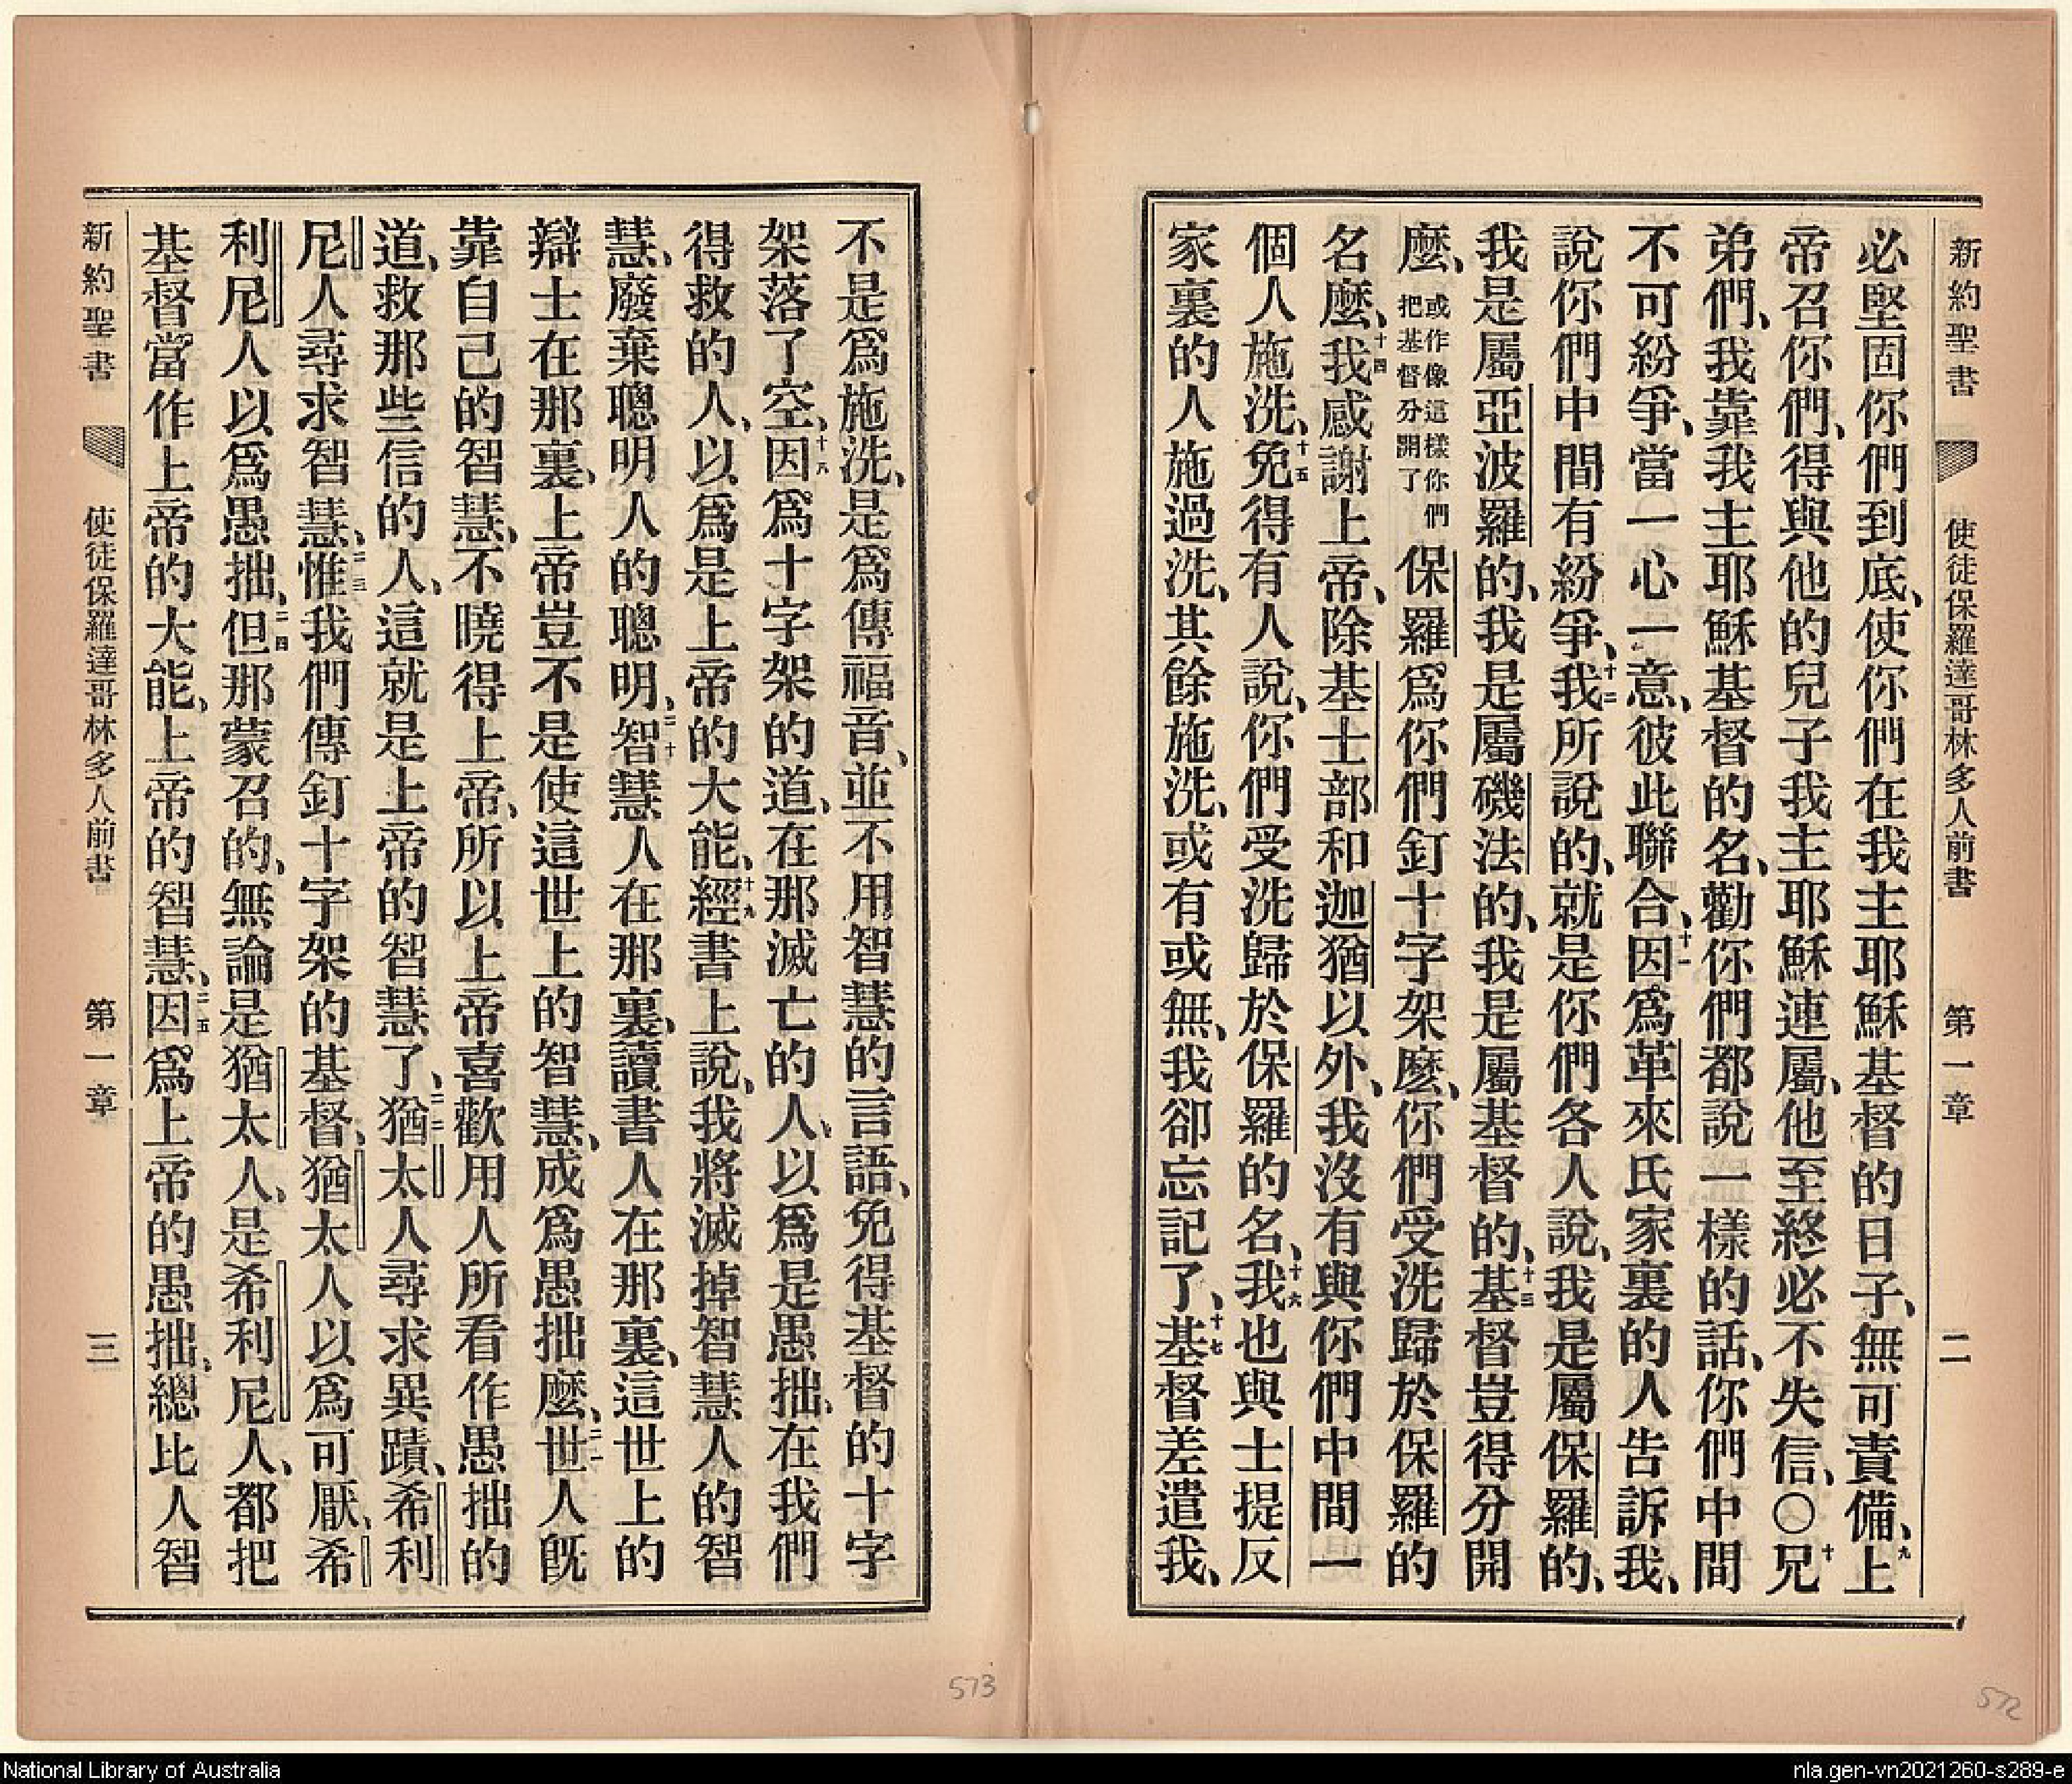 新約聖書 使徒保羅達哥林多人前書 第一章 二
必堅固你們到底、使你們在我主耶穌基督的日子、無可責備、九上
帝召你們、得與他的兒子我主耶穌連屬、他至終必不失信、○十兄
弟們、我靠我主耶穌基督的名、勸你們都說一樣的話、你們中間
不可紛爭、當一心一意、彼此聯合、十一因爲革來氏家裏的人告訴我、
說你們中間有紛爭、十二我所說的、就是你們各人說、我是屬保羅的、
我是屬亞波羅的、我是屬磯法的、我是屬基督的、十三基督豈得分開
麼、或作像這樣你們把基督分開了保羅爲你們釘十字架麼、你們受洗歸於保羅的
名麼、十四我感謝上帝、除基士部和迦猶以外、我沒有與你們中間一
個人施洗、十五免得有人說、你們受洗歸於保羅的名、十六我也與士提反
家裏的人施過洗、其餘施洗、或有或無、我卻忘記了、十七基督差遣我、
不是爲施洗、是爲傳福音、並不用智慧的言語、免得基督的十字
架落了空、十八因爲十字架的道、在那滅亡的人、以爲是愚拙、在我們
得救的人、以爲是上帝的大能、十九經書上說、我將滅掉智慧人的智
慧、廢棄聰明人的聰明、二十智慧人在那裏、讀書人在那裏、這世上的
辯士在那裏、上帝豈不是使這世上的智慧、成爲愚拙麼、二一世人旣
靠自己的智慧、不曉得上帝、所以上帝喜歡用人所看作愚拙的
道、救那些信的人、這就是上帝的智慧了、二二猶太人尋求異蹟、希利
尼人尋求智慧、二三惟我們傳釘十字架的基督、猶太人以爲可厭、希
利尼人以爲愚拙、二四但那蒙召的、無論是猶太人、是希利尼人、都把
基督當作上帝的大能、上帝的智慧、二五因爲上帝的愚拙、總比人智
新約聖書 使徒保羅達哥林多人前書 第一章 三
573
572
National Library of Australia
nla.gen-vn2021260-s289-e